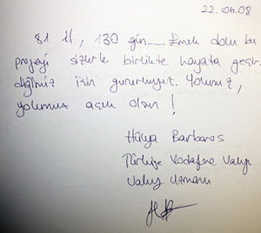 22.06.08
81 il, 130 gün..... Emek dolu bu
projeyi sizlerle birlikte hayata geçir-
diğimiz için gururluyuz. Yolunuz,
yolumuz açık olsun!
Hülya Barbaros
Türkiye Vodafone Vakfı
Vakıf Uzmanı